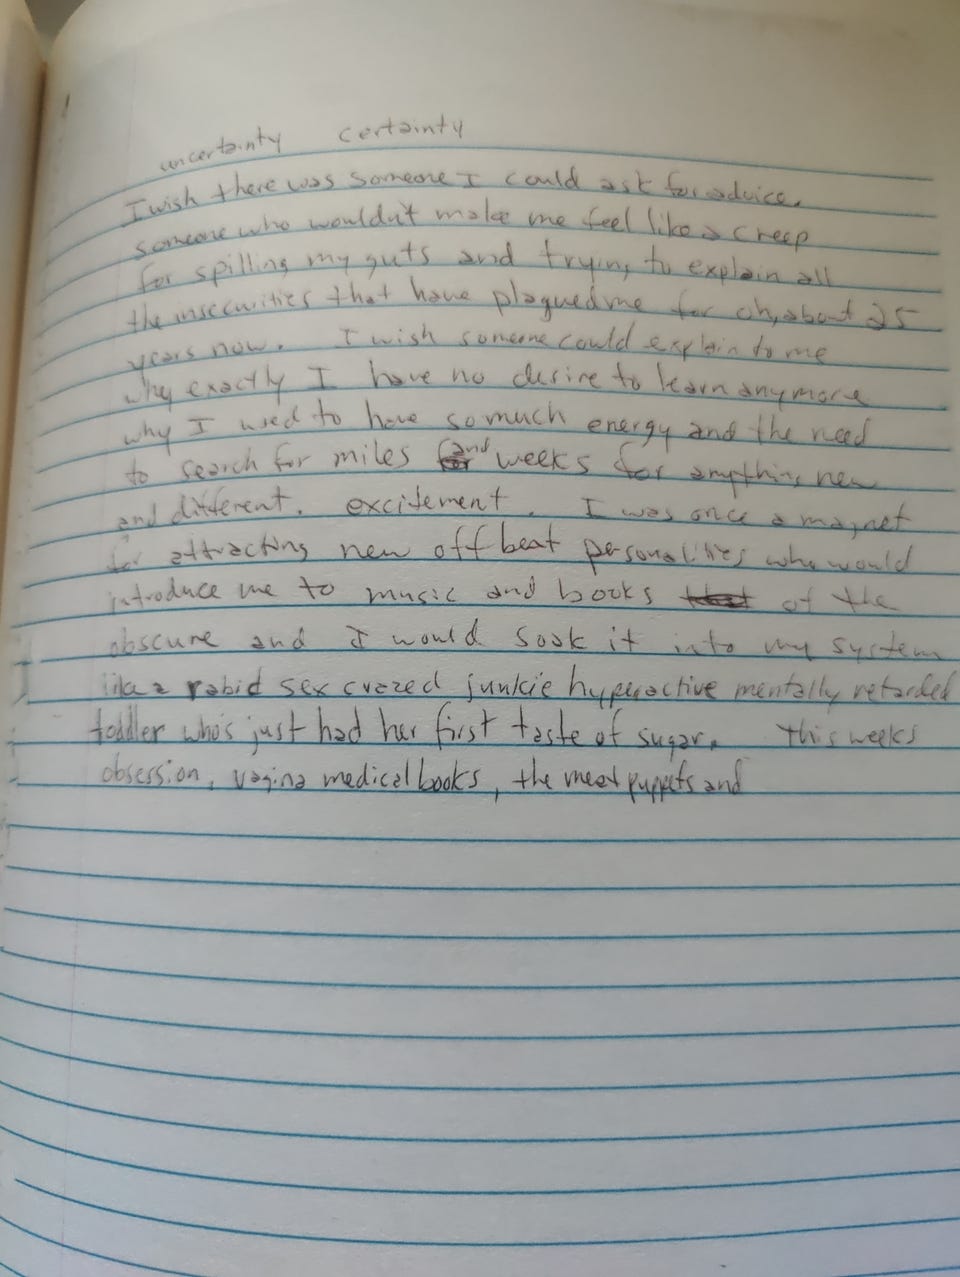 uncertainty certainty
I wish there was someone I could ask for advice.
someone who wouldn't make me feel like a creep
for spilling my guts and trying to explain all
the insecurities that have plagued me for oh, about 25
years now. I wish someone could explain to me
why exactly I have no desire to learn anymore
why I used to have so much energy and the need
to search for miles and weeks for anything new
and different. excitement. I was once a magnet
for attracting new offbeat personalities who would
introduce me to music and books of the
obscure and I would soak it into my system
like a rabid sex crazed junkie hyperactive mentally retarded
toddler who's just had her first taste of sugar. this weeks
obsession, vagina medical books, the meat puppets and